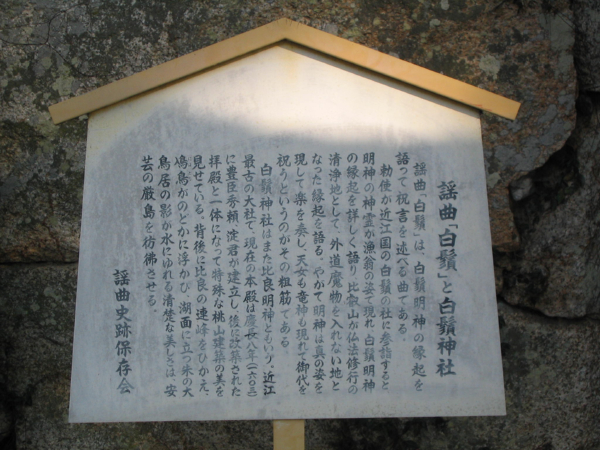 謡曲「白鬚」と白鬚神社
謡曲「白鬚」は、白鬚明神の縁起を
語って祝言を述べる曲である。
勅使が近江国の白鬚の社に参詣すると
明神の神霊が漁翁の姿で現れ、白鬚明神
の縁起を詳しく語り、比叡山が仏法修行の
清浄地として、外道魔物を入れない地と
なった縁起を語る。やがて明神は真の姿を
現して楽を奏し、天女も竜神も現れて御代を
祝うというのがその粗筋である。
白鬚神社はまた比良明神ともいい、近江
最古の大社で、現在の本殿は慶長八年(一六〇三)
に豊臣秀頼、淀君が建立し、後に改築された
拝殿と一体になって特殊な桃山建築の美を
見せている。背後に比良の連峰をひかえ、
鳰鳥がのどかに浮かび、湖面に立つ朱の大
鳥居の影が水にゆれる清楚な美しさは、安
芸の厳島を彷彿させる。
謡曲史跡保存会